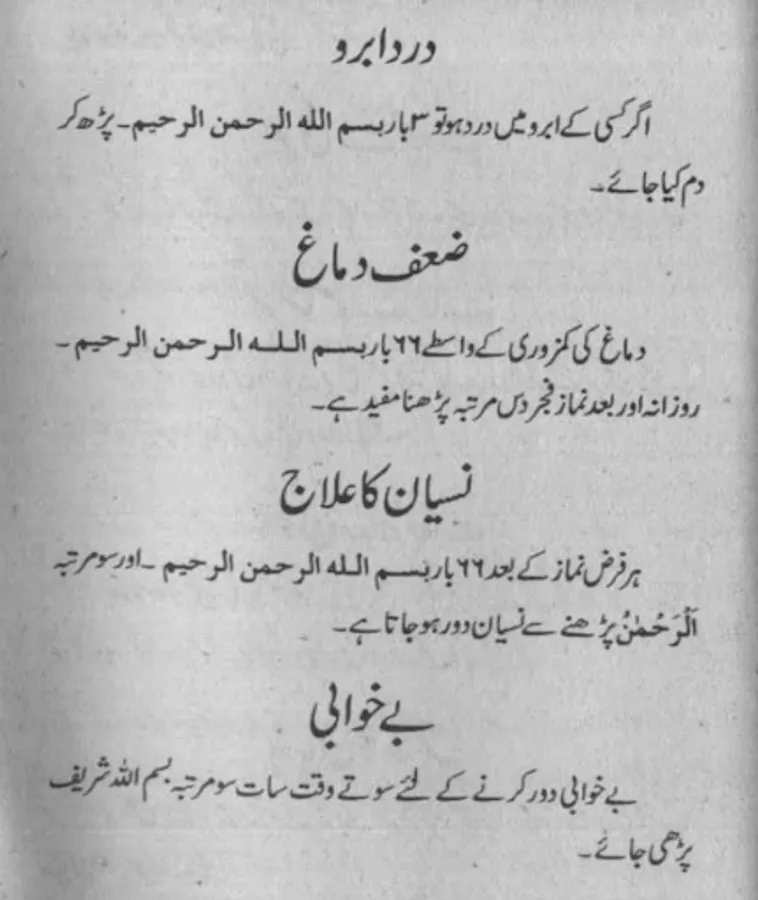 درد ابرو
اگر کسی کے ابرو میں درد ہو تو ۳ بار بسم الله الرحمن الرحیم۔ پڑھ کر
دم کیا جائے۔
ضعف دماغ
دماغ کی کمزوری کے واسطے ۶۶ بار بسم الله الرحمن الرحیم۔
روزانہ اور بعد نماز فجر دس مرتبہ پڑھنا مفید ہے۔
نسیان کا علاج
ہر فرض نماز کے بعد ۶۶ بار بسم الله الرحمن الرحیم۔ اور سو مرتبہ
اَلْرَحْمٰنُ پڑھنے سے نسیان دور ہو جاتا ہے۔
بے خوابی
بے خوابی دور کرنے کے لئے سوتے وقت سات سو مرتبہ بسم اللہ شریف
پڑھی جائے۔